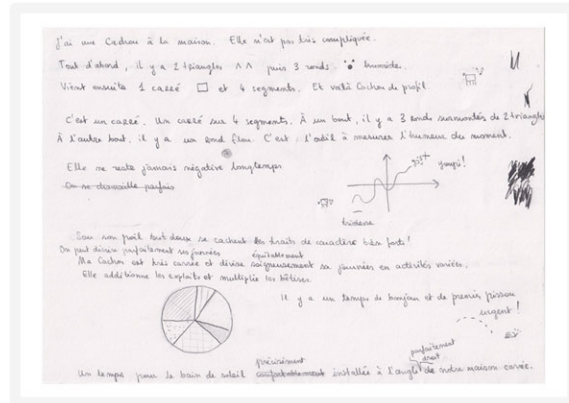 J'ai une Cachou à la maison. Elle n'est pas très compliquée.
Tout d'abord, il y a 2 triangles ∧∧ puis 3 ronds humide.
Vient ensuite 1 carré □ et 4 segments. Et voilà Cachou de profil
C'est un carré. Un carré sur 4 segments. À un bout, il y a 3 ronds surmontés de 2 triangles
À l'autre bout, il y a un rond flou. C'est l'outil à mesurer l'humeur du moment.
Elle ne reste jamais négative longtemps
parfois
youpi!
tristesse
Sous son poil tout doux se cachent des traits de caractère bien forts!
On peut diviser parfaitement ses journées
équitablement
Ma Cachou est très carrée et divise soigneusement sa journées en activités variées.
Elle additionne les exploits et multiplie les bêtises.
Il y a un temps de bonjour et de premier pissou
urgent!
précisément
parfaitement
droit
Un temps pour le bain de soleil confortablement installée à l'angle de notre maison carrée.